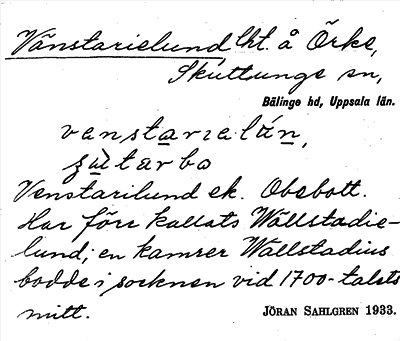 Vänstarielund lht. å Örke,
Skuttunge sn,
Bälinge hd, Uppsala län.
venstarielún,
sùtarbo
Venstarilund ek. Obebott.
Har förr kallats Wållstadie-
lund; en kamrer Wallstadius
bodde i socknen vid 1700-talets
mitt.
JÖRAN SAHLGREN 1933.